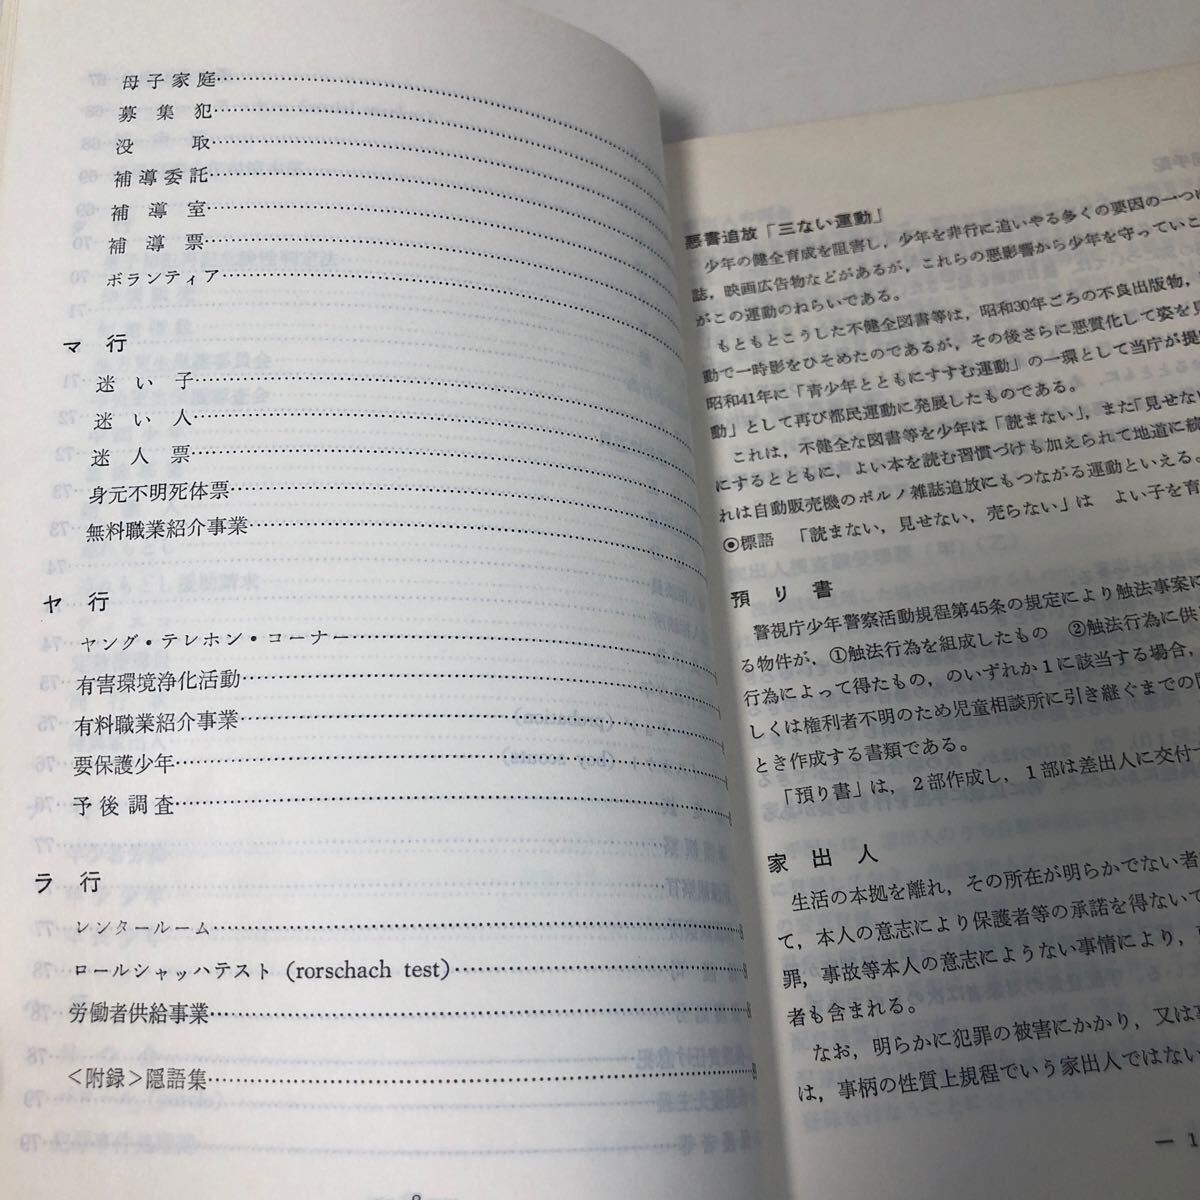 母子家庭
募集犯
没取
補導委託
補導室
補導票
ボランティア
マ行
迷い子
迷い人
迷人票
身元不明死体票
無料職業紹介事業
ヤ行
ヤング・テレホン・コーナー
有害環境浄化活動
有料職業紹介事業
要保護少年
予後調査
ラ行
レンタールーム
ロールシャッハテスト (rorschach test)
労働者供給事業
<附録>隠語集
悪書追放「三ない運動」
少年の健全育成を阻害し，少年を非行に追いやる多くの要因の一つに
誌，映画広告物などがあるが，これらの悪影響から少年を守っていこ
がこの運動のねらいである。
もともとこうした不健全図書等は，昭和30年ごろの不良出版物，
動で一時影をひそめたのであるが，その後さらに悪質化して姿を見
昭和41年に「青少年とともにすすむ運動」の一環として当庁が提
動」として再び都民運動に発展したものである。
これは，不健全な図書等を少年は「読まない」，また「見せない
にするとともに，よい本を読む習慣づけも加えられて地道に続
れは自動販売機のポルノ雑誌追放にもつながる運動といえる。
◉標語 「読まない，見せない，売らない」は よい子を育
預り書
警視庁少年警察活動規程第45条の規定により触法事案に
る物件が，①触法行為を組成したもの ②触法行為に供
行為によって得たもの，のいずれか1に該当する場合，
しくは権利者不明のため児童相談所に引き継ぐまでの
とき作成する書類である。
「預り書」は，2部作成し，1部は差出人に交付
家出人
生活の本拠を離れ，その所在が明らかでない者
て，本人の意志により保護者等の承諾を得ないで
罪，事故等本人の意志にようない事情により，
者も含まれる。
なお，明らかに犯罪の被害にかかり，又は
は，事柄の性質上規程でいう家出人ではない
— 1